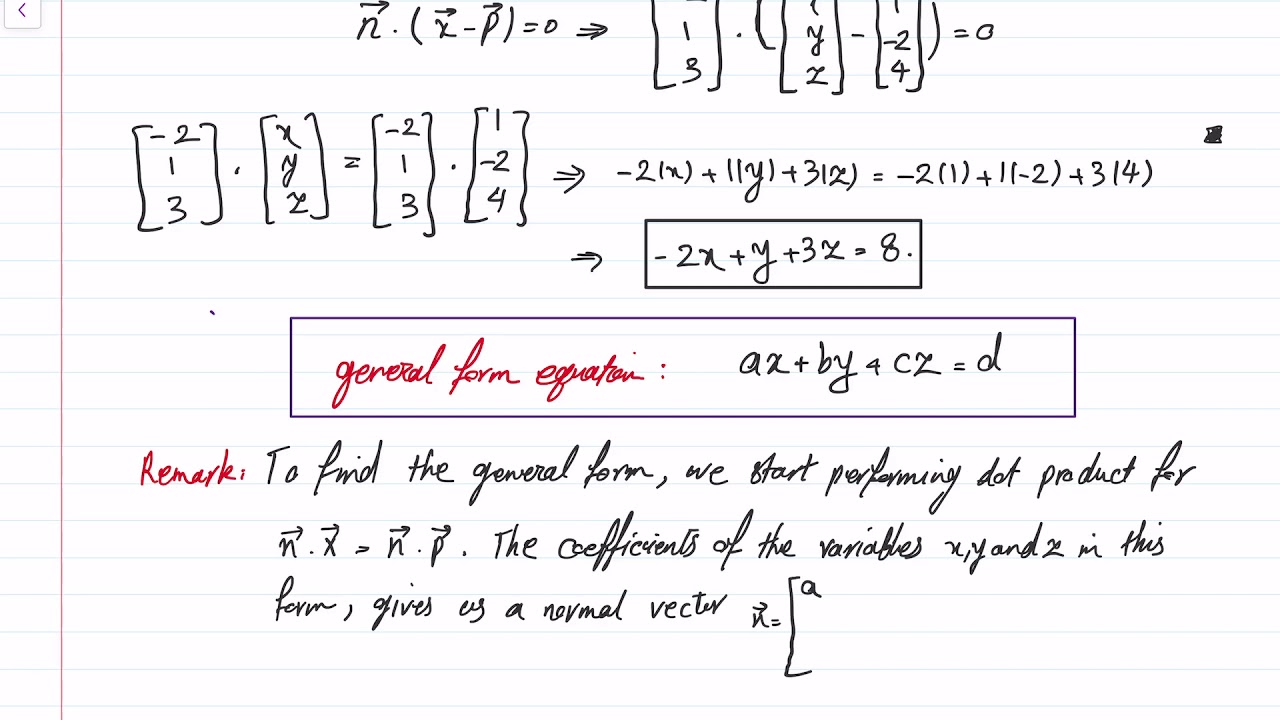 n⃗ · (x⃗ - p⃗) = 0 ⇒ [1 3] · ([y z] - [-2 4]) = 0
[-2 1 3] · [x y z] = [-2 1 3] · [1 -2 4] ⇒ -2(x) + 1(y) + 3(z) = -2(1) + 1(-2) + 3(4)
⇒ -2x + y + 3z = 8.
general form equation: ax + by + cz = d
Remark: To find the general form, we start performing dot product for
n⃗ · x⃗ = n⃗ · p⃗. The coefficients of the variables x, y and z in this
form, gives us a normal vector n⃗ = [a